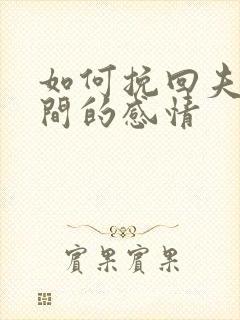 如何挽回夫
間的感情
賓果賓果